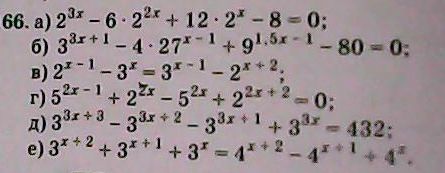 66. а) 2^{3x} − 6 · 2^{2x} + 12 · 2^x − 8 = 0;
б) 3^{3x + 1} − 4 · 27^{x − 1} + 9^{1,5x − 1} − 80 = 0;
в) 2^{x − 1} − 3^x = 3^{x − 1} − 2^{x + 2};
г) 5^{2x − 1} + 2^{2x} − 5^{2x} + 2^{2x + 2} = 0;
д) 3^{3x + 3} − 3^{3x + 2} − 3^{3x + 1} + 3^{3x} = 432;
е) 3^{x + 2} + 3^{x + 1} + 3^x = 4^{x + 2} − 4^{x + 1} + 4^x.